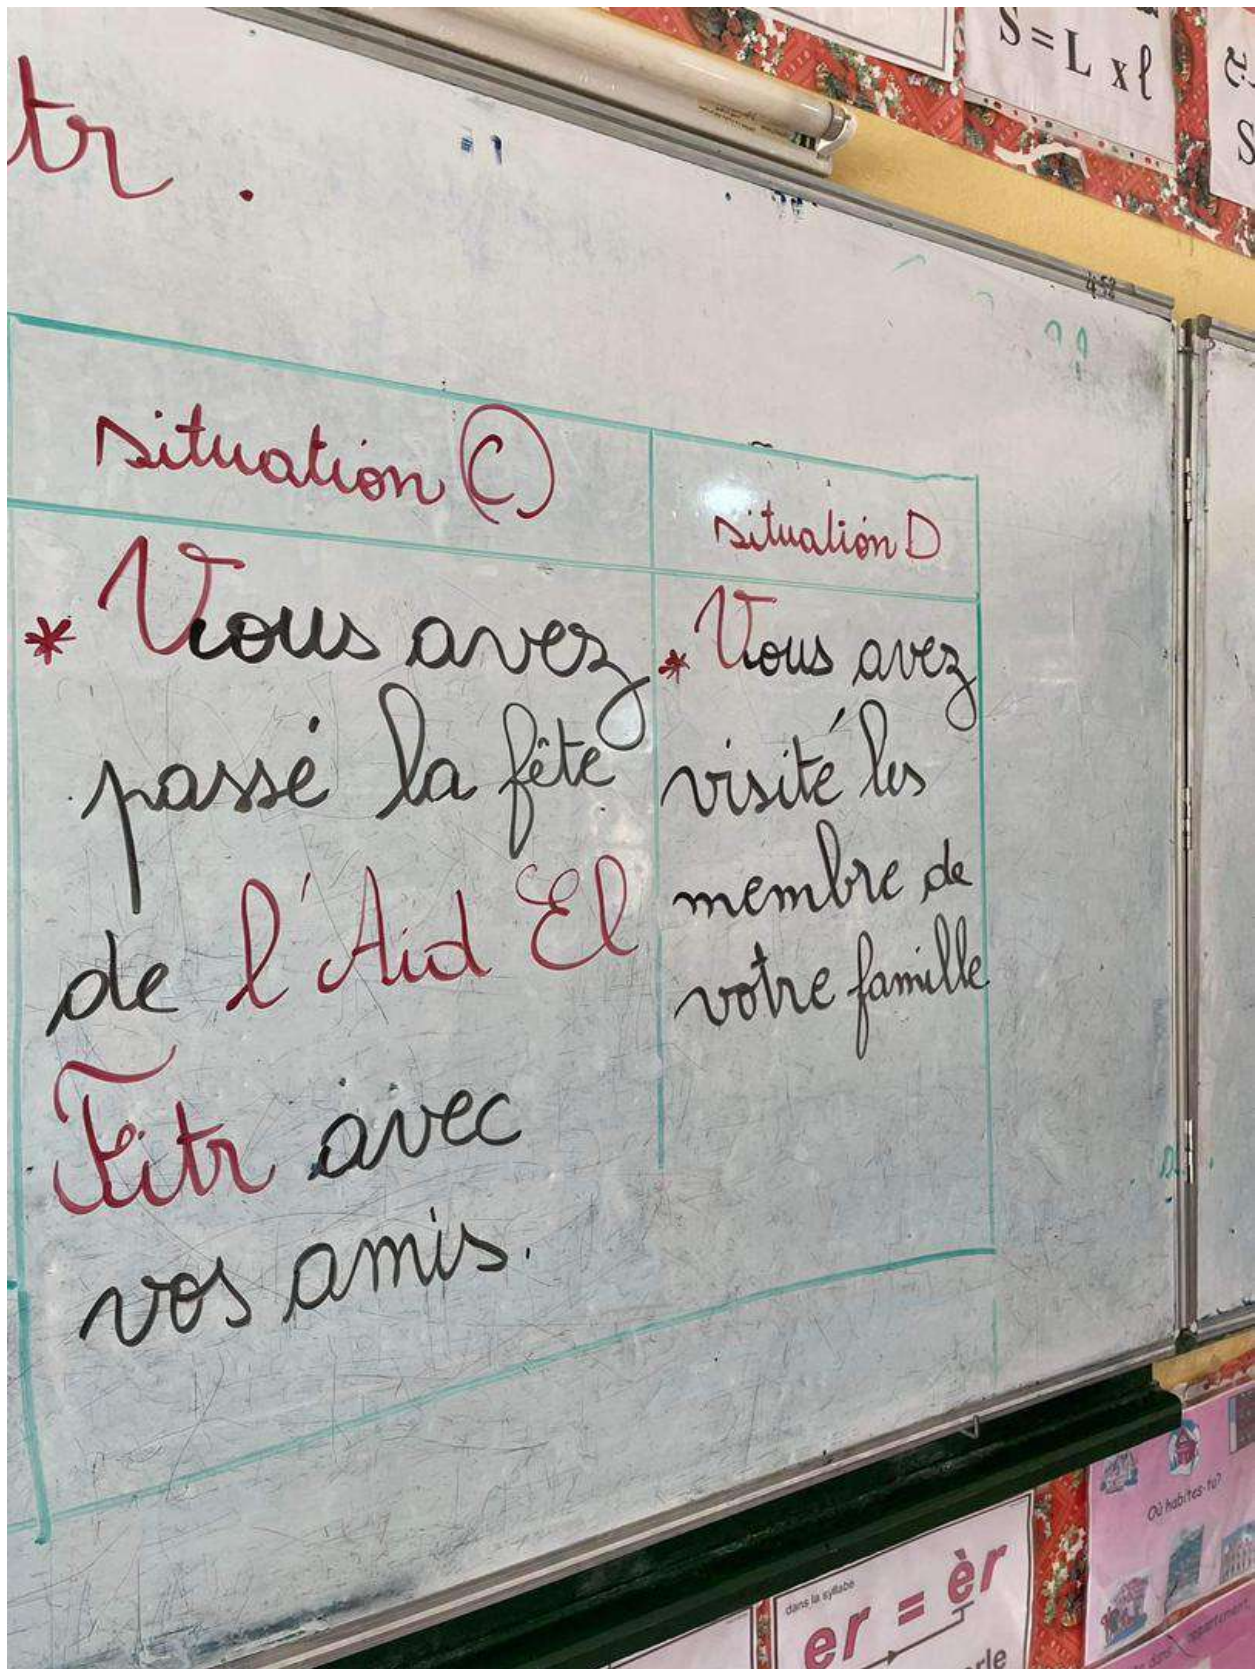 S = L x l
S
tr.
situation C
situation D
* Vous avez
passé la fête
de l'Aid El
Fitr avec
vos amis.
* Vous avez
visité les
membre de
votre famille
Où habites-tu?
dans la syllabe
er = èr